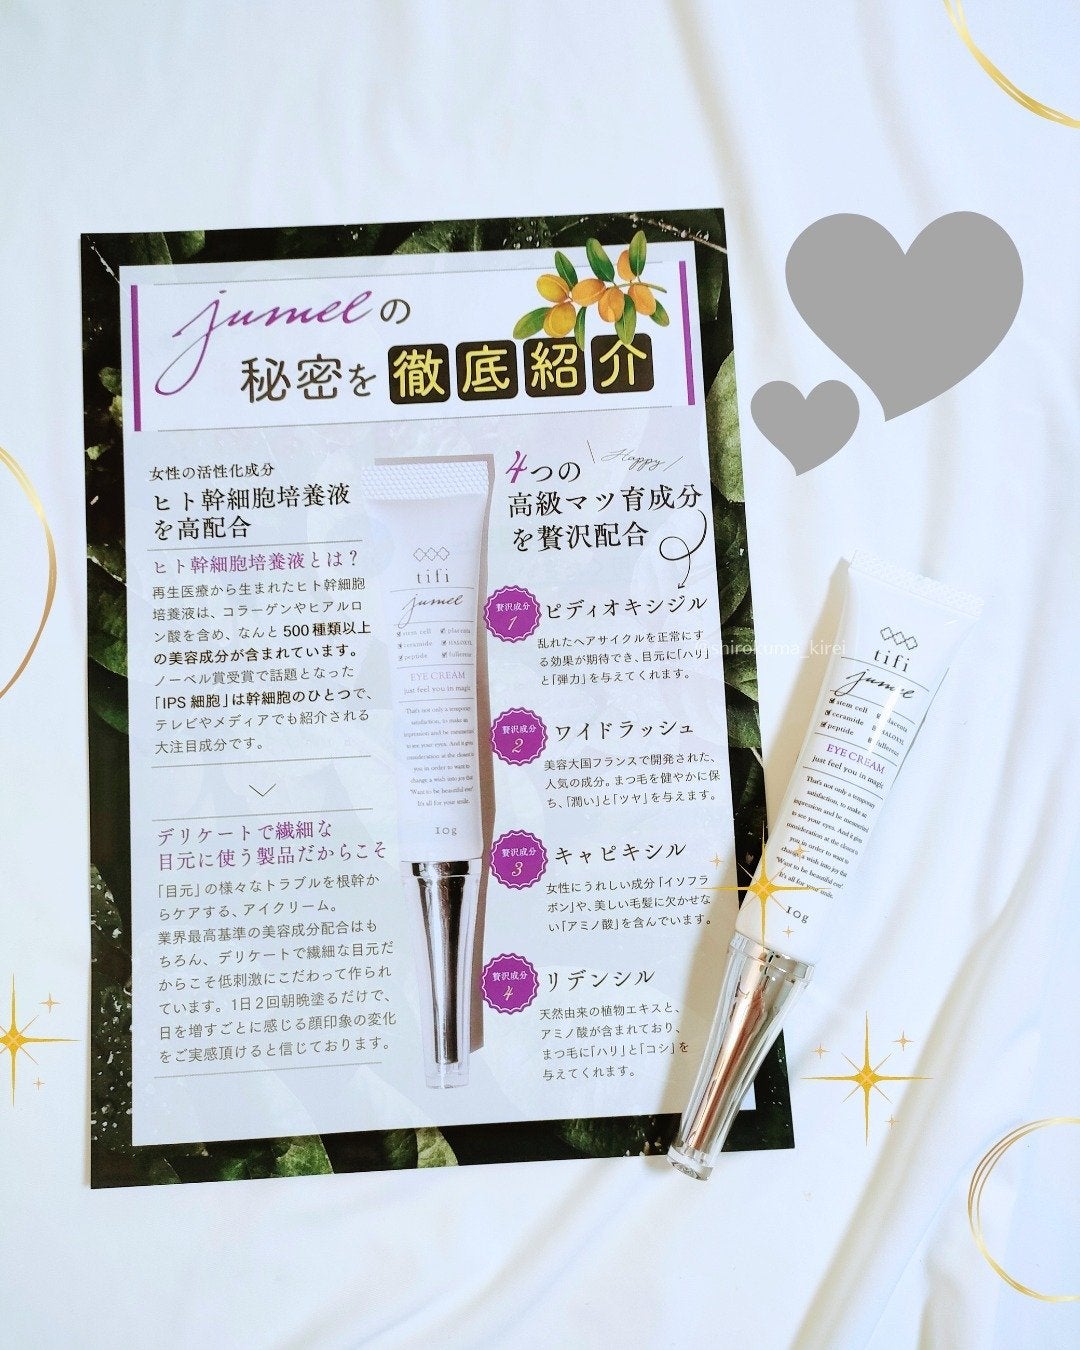 jumelの
秘密を徹底紹介
女性の活性化成分
ヒト幹細胞培養液
を高配合
ヒト幹細胞培養液とは？
再生医療から生まれたヒト幹細胞
培養液は、コラーゲンやヒアルロ
ン酸を含め、なんと500種類以上
の美容成分が含まれています。
ノーベル賞受賞で話題となった
「IPS細胞」は幹細胞のひとつで、
テレビやメディアでも紹介される
大注目成分です。
デリケートで繊細な
目元に使う製品だからこそ
「目元」の様々なトラブルを根幹か
らケアする、アイクリーム。
業界最高基準の美容成分配合はも
ちろん、デリケートで繊細な目元だ
からこそ低刺激にこだわって作られ
ています。1日2回朝晩塗るだけで、
日を増すごとに感じる顔印象の変化
をご実感頂けると信じております。
tifi
jumel
stem cell
placenta
ceramide
HALOXYL
peptide
fullerene
EYE CREAM
just feel you in magic
That's not only a temporary
satisfaction, to make an
impression and be memories
to see your eyes. And it gives
consideration at the closest to
you in order to want to
change a wish into joy that
"Want to be beautiful eye!
It's all for your smile.
10g
4つの
Happy
高級マツ育成分
を贅沢配合
贅沢成分
1
ピディオキシジル
乱れたヘアサイクルを正常にす
る効果が期待でき、目元に「ハリ」
と「弾力」を与えてくれます。
贅沢成分
2
ワイドラッシュ
美容大国フランスで開発された、
人気の成分。まつ毛を健やかに保
ち、「潤い」と「ツヤ」を与えます。
贅沢成分
3
キャピキシル
女性にうれしい成分「イソフラ
ボン」や、美しい毛髪に欠かせな
い「アミノ酸」を含んでいます。
贅沢成分
4
リデンシル
天然由来の植物エキスと、
アミノ酸が含まれており、
まつ毛に「ハリ」と「コシ」を
与えてくれます。
shirokuma_kirei
tifi
jumel
stem cell
placenta
ceramide
HALOXYL
peptide
fullerene
EYE CREAM
just feel you in magic
That's not only a temporary
satisfaction, to make an
impression and be memories
to see your eyes. And it gives
consideration at the closest to
you in order to want to
change a wish into joy that
"Want to be beautiful eye!
It's all for your smile.
10g